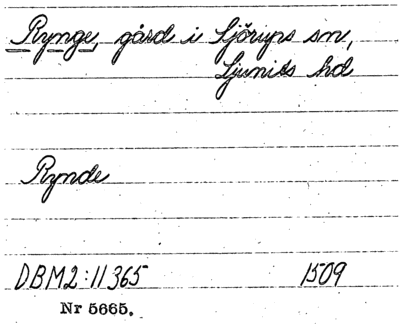 Rynge, gård i Sjörups sn,
Ljunits hd
Rynde
DBM2:11 365 1509
Nr 5665.